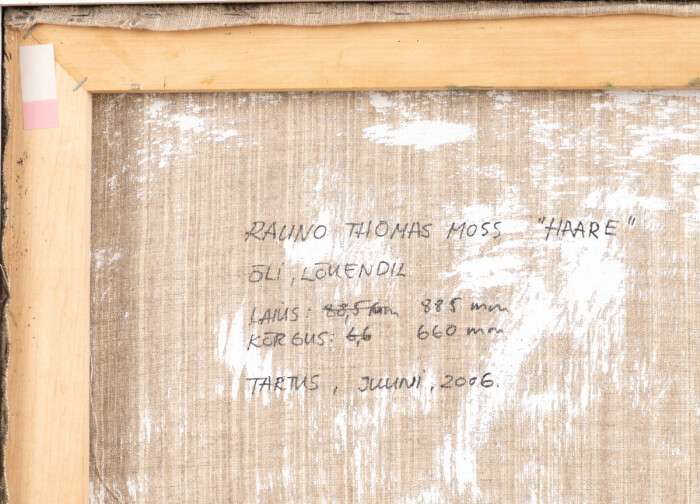 RAUNO THOMAS MOSS "HAARE"
ÕLI, LÕUENDIL
LAIUS: 88,5 cm 885 mm
KÕRGUS: 6,6 660 mm
TARTUS, JUUNI, 2006.